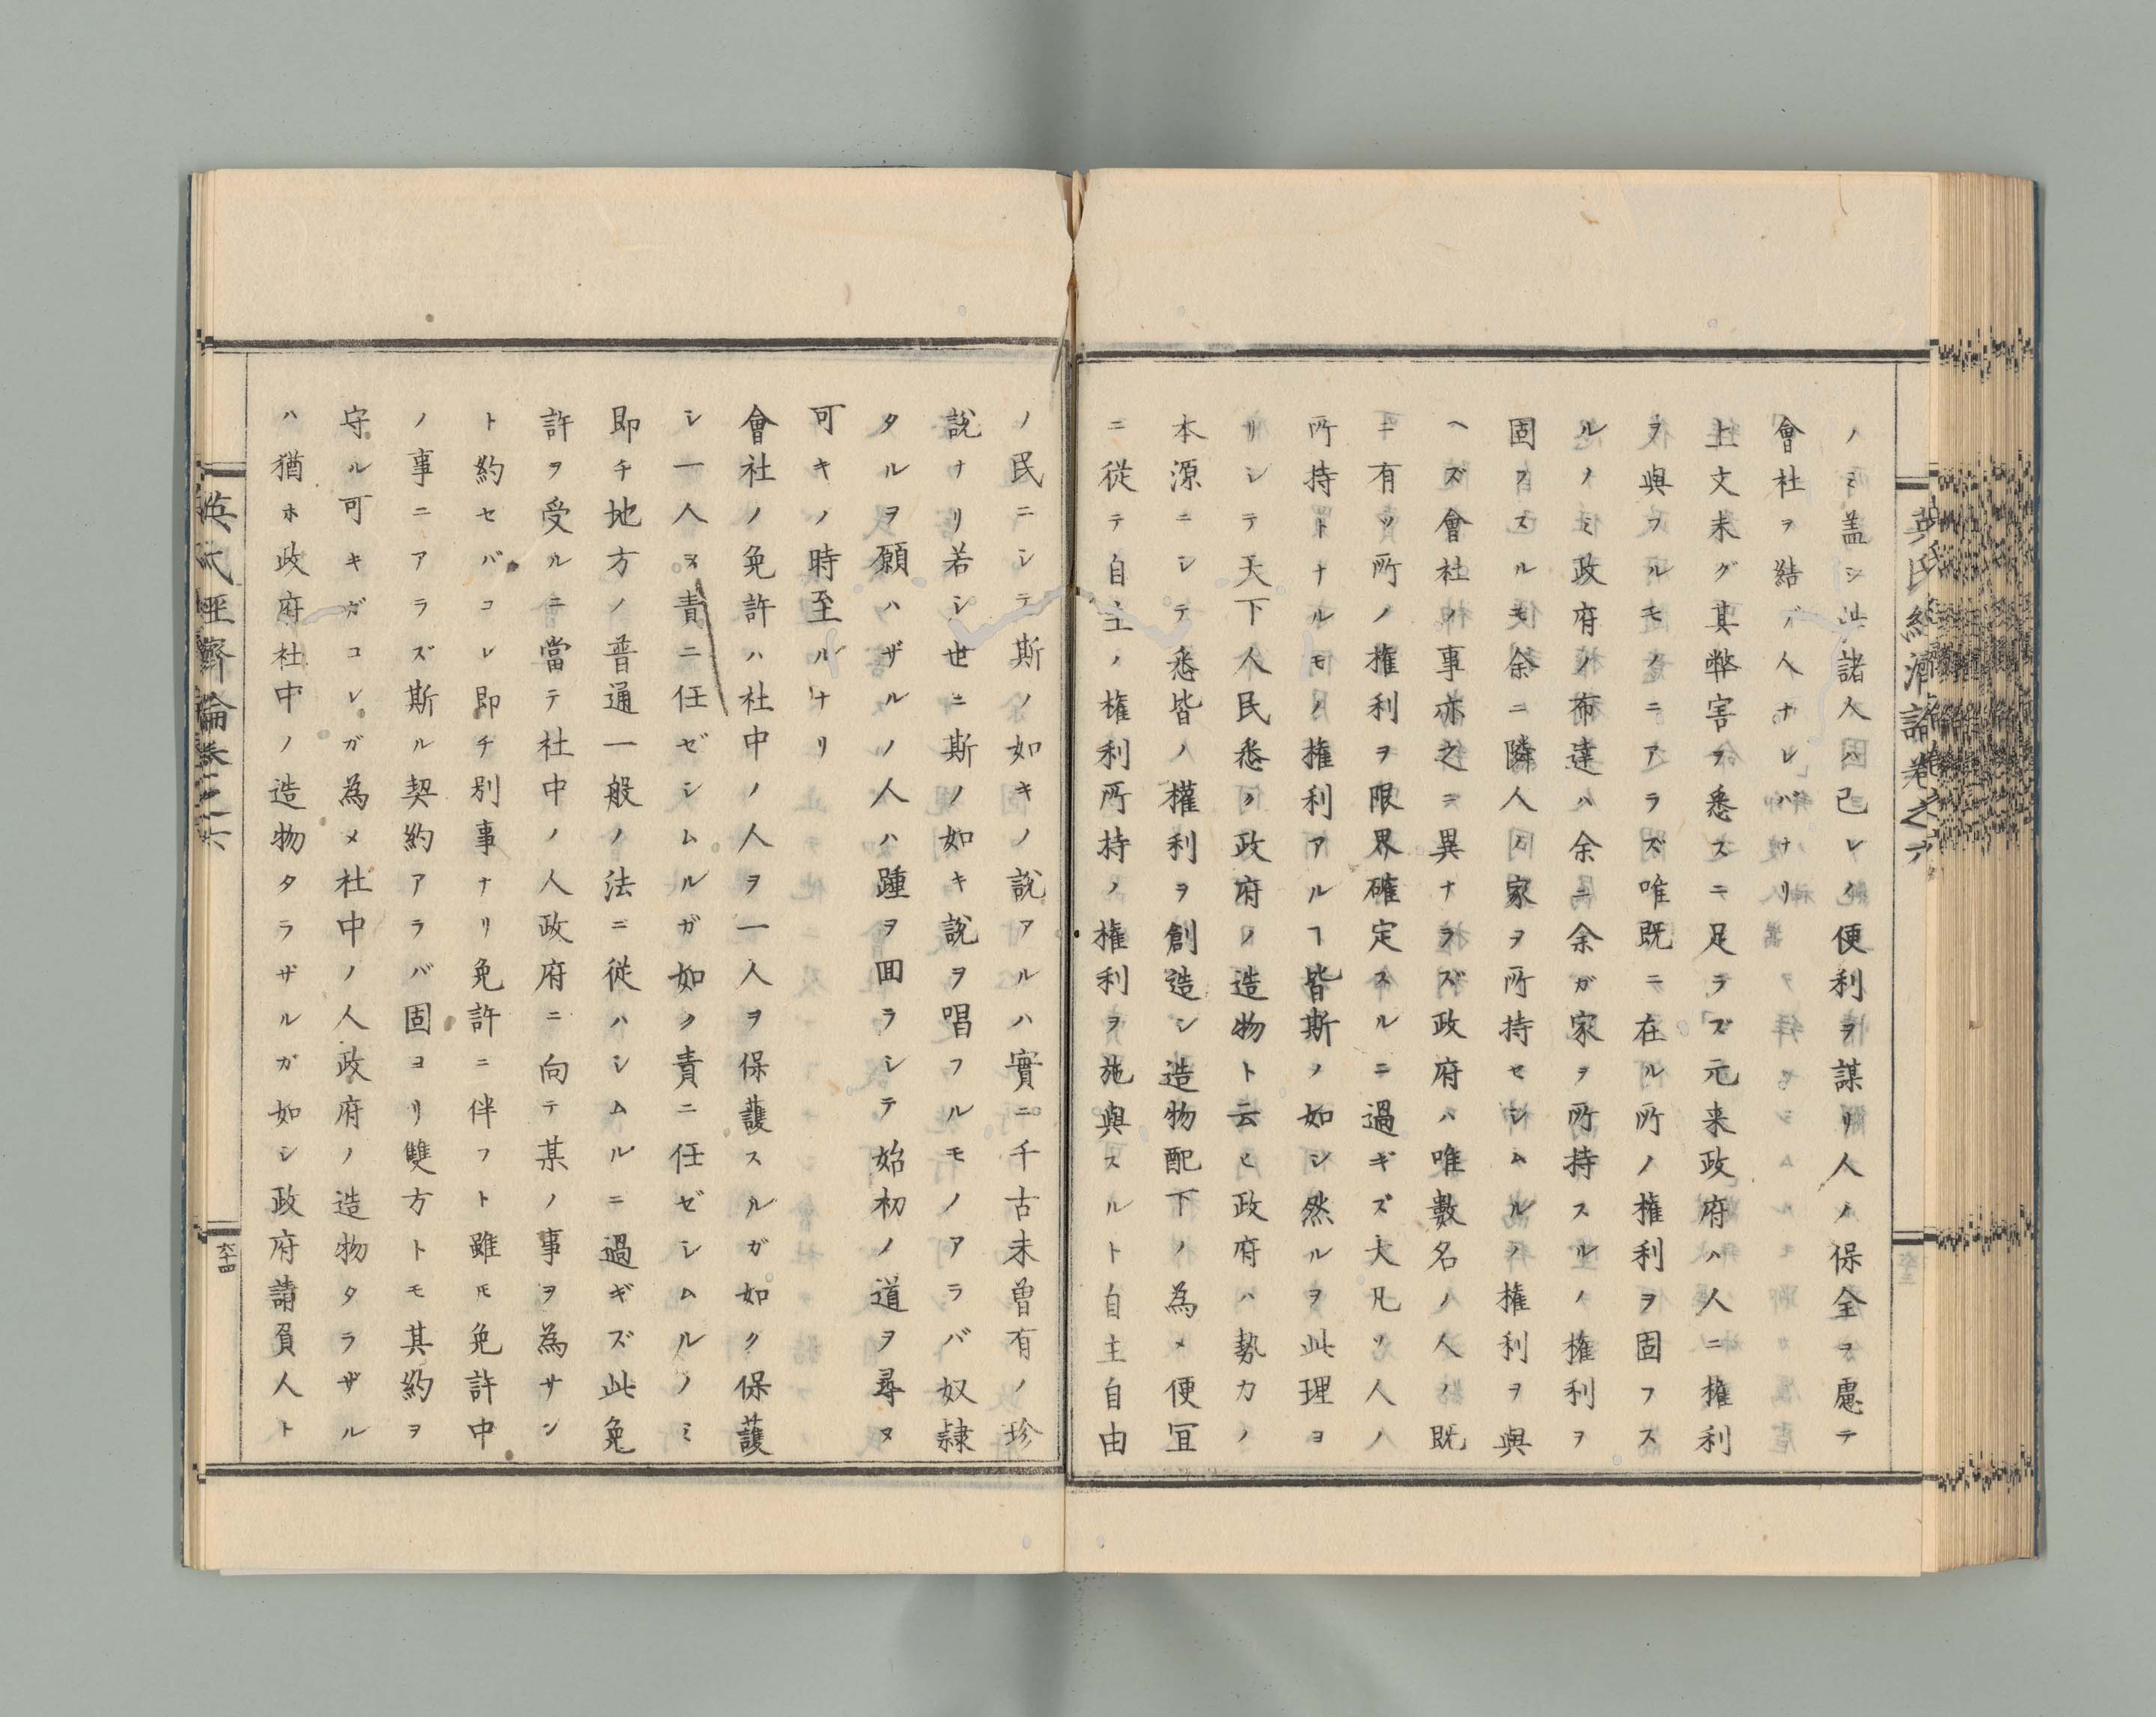 ノミ盖シ此諸人ハ己レノ便利ヲ謀リ人ノ保全ヲ慮テ
會社ヲ結ブ人ナレバナリ
上文未グ其弊害ヲ悉スニ足ラズ元来政府ハ人ニ権利
ヲ與フルモノニアラズ唯既ニ在ル所ノ権利ヲ固フス
ルノミ政府ノ布達ハ余ニ余ガ家ヲ所持スルノ権利ヲ
固フスルモ余ニ隣人ノ家ヲ所持セシムルノ権利ヲ與
ヘズ會社ノ事亦之ニ異ナラズ政府ハ唯數名ノ人ノ既
ニ有ツ所ノ権利ヲ限界確定スルニ過ギズ大凡ソ人ノ
所持トナルモノ権利アルヿ皆斯ノ如シ然ルヲ此理ヨ
リシテ天下人民悉ク政府ノ造物ト云ヒ政府ハ勢力ノ
本源ニシテ悉皆ノ權利ヲ創造シ造物配下ノ為メ便宜
ニ従テ自主ノ権利所持ノ権利ヲ施與スルト自主自由
英氏經濟論卷之六
ノ民ニシテ斯ノ如キノ説アルハ實ニ千古未曽有ノ珍
説ナリ若シ世ニ斯ノ如キ説ヲ唱フルモノアラバ奴隷
タルヲ願ハザルノ人ハ踵ヲ囬ラシテ始初ノ道ヲ尋ヌ
可キノ時至ルナリ
會社ノ免許ハ社中ノ人ヲ一人ヲ保護スルガ如ク保護
シ一人ヲ責ニ任ゼシムルガ如ク責ニ任ゼシムルノミ
即チ地方ノ普通一般ノ法ニ従ハシムルニ過ギズ此免
許ヲ受ルニ當テ社中ノ人政府ニ向テ某ノ事ヲ為サン
ト約セバコレ即チ別事ナリ免許ニ伴フト雖モ免許中
ノ事ニアラズ斯ル契約アラバ固ヨリ雙方トモ其約ヲ
守ル可キガコレガ為メ社中ノ人政府ノ造物タラザル
ハ猶ホ政府社中ノ造物タラザルガ如シ政府請負人ト
英氏經濟論卷之六
六十四